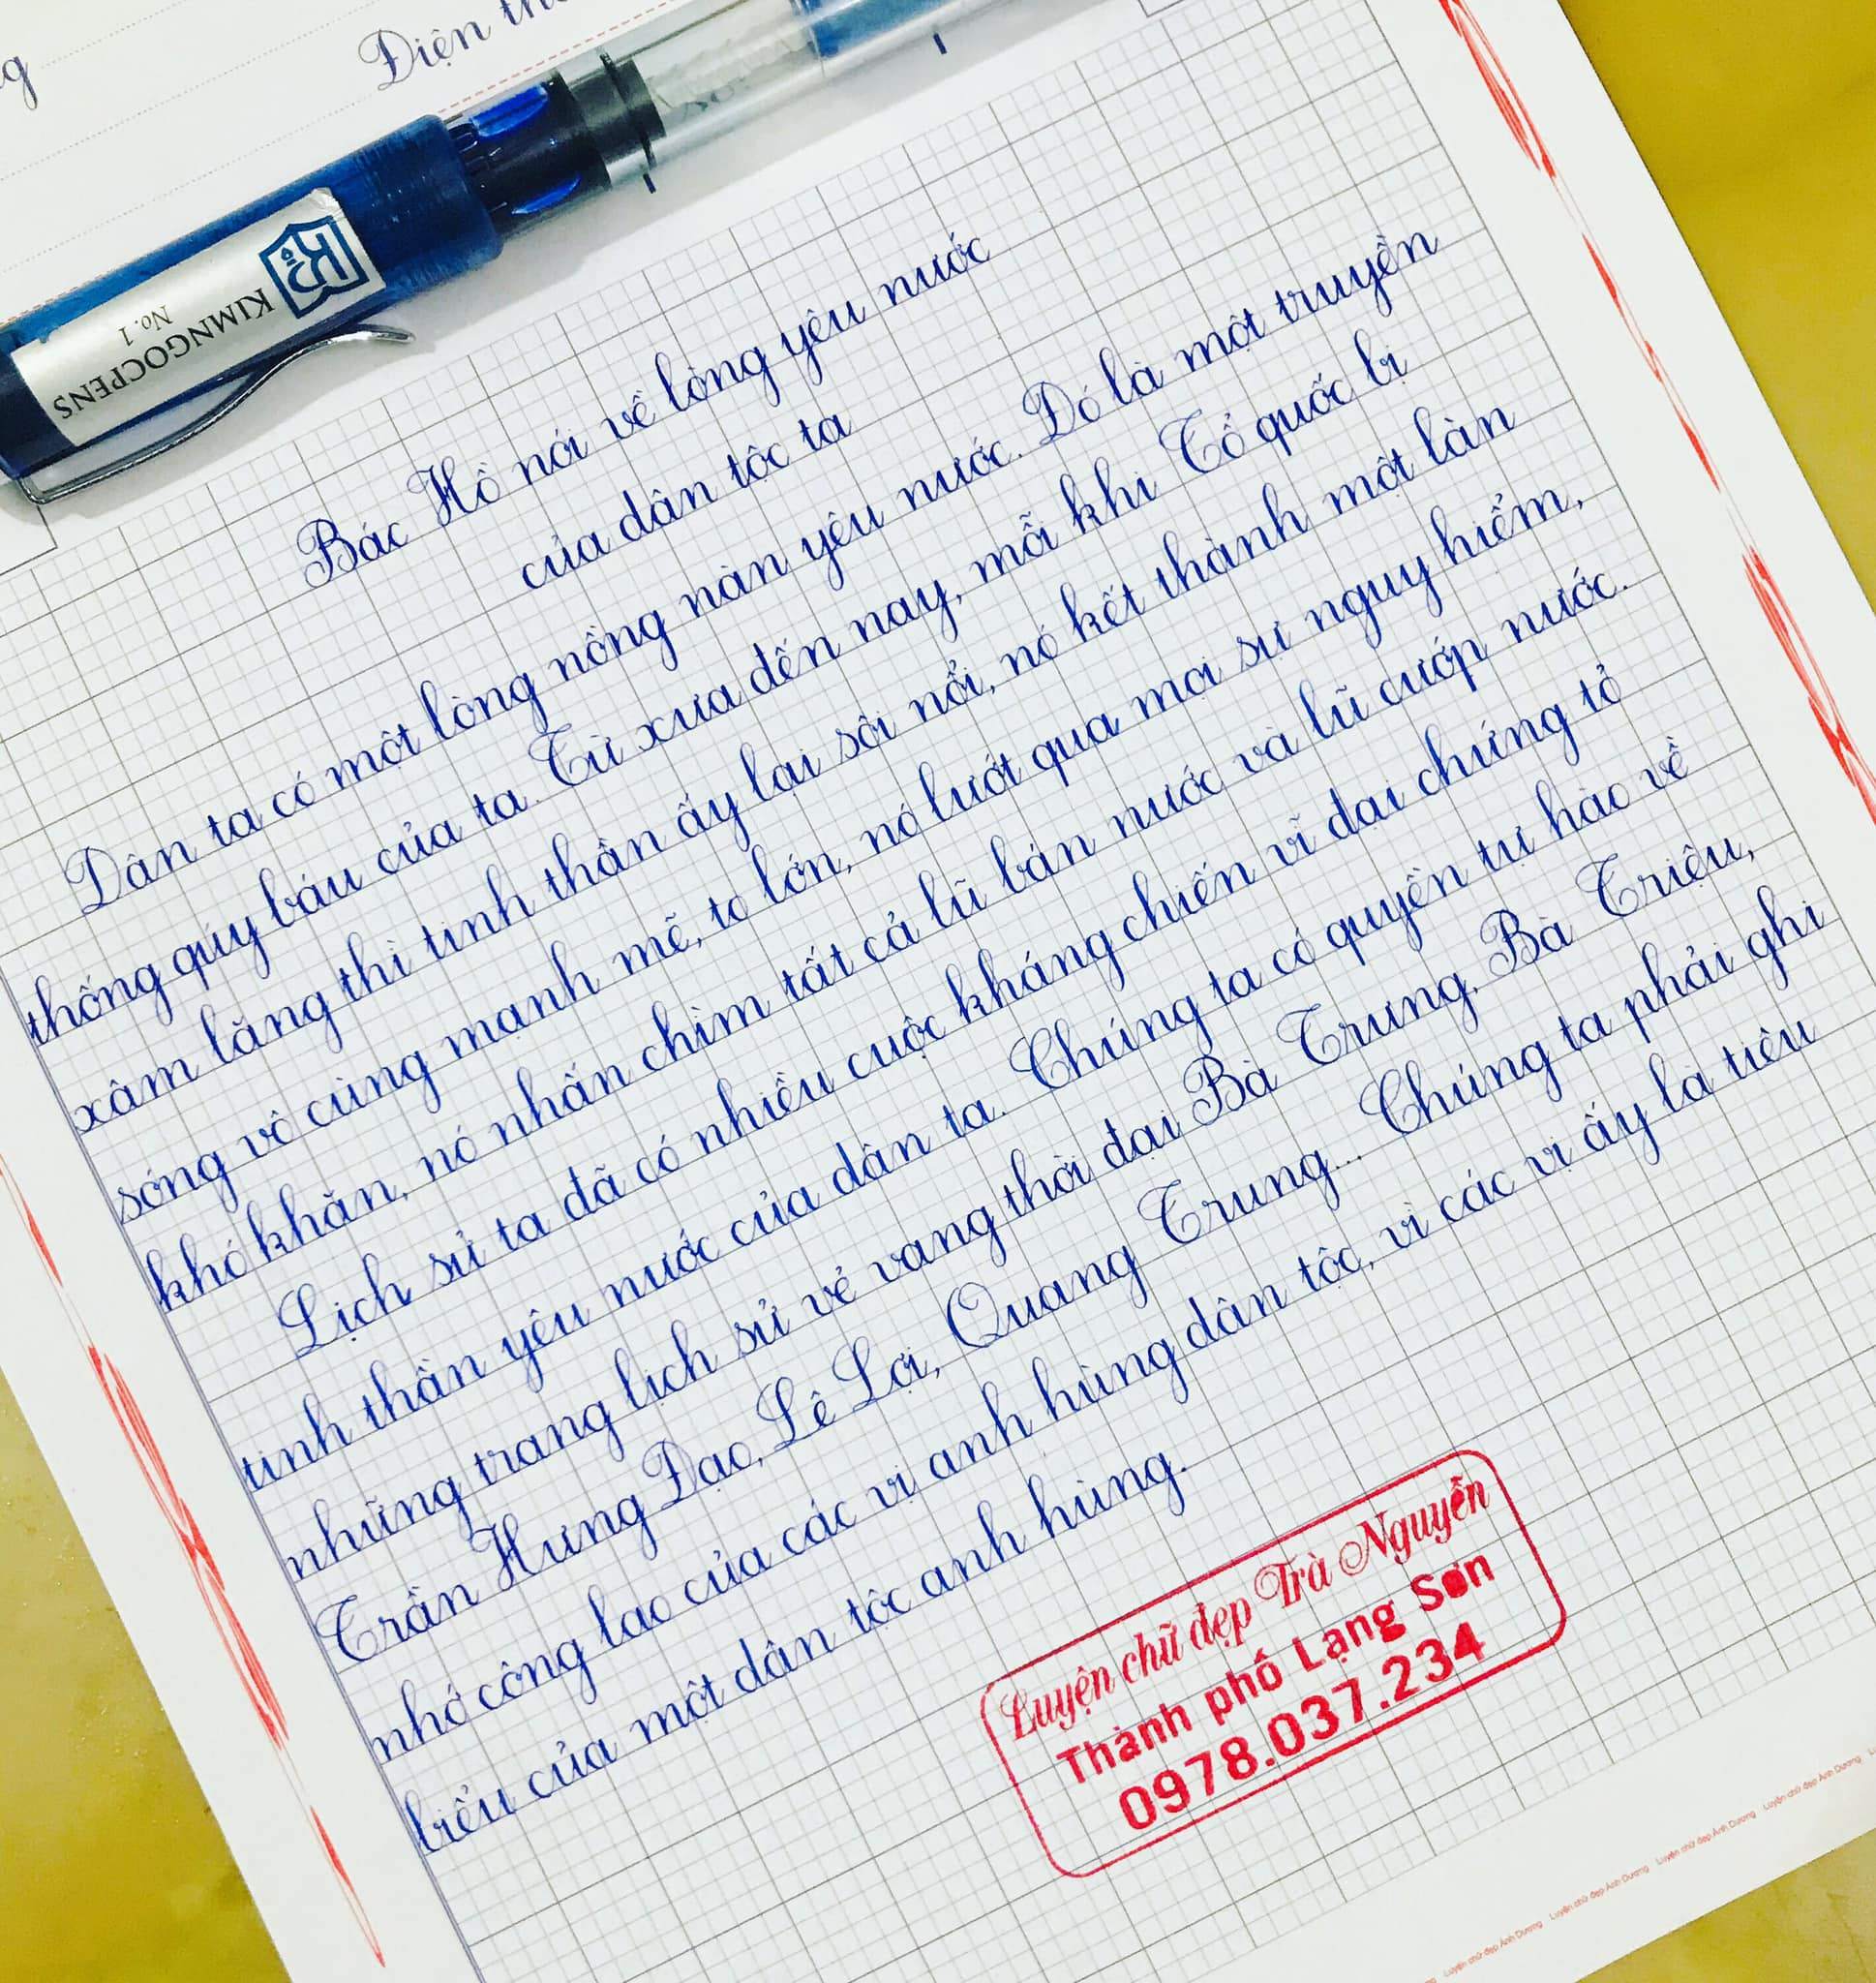 Điện th
KIMNGOCPENS
No.1
Bác Hồ nói về lòng yêu nước
của dân tộc ta
Dân ta có một lòng nồng nàn yêu nước. Đó là một truyền
thống qúy báu của ta. Từ xưa đến nay, mỗi khi Tổ quốc bị
xâm lăng thì tinh thần ấy lại sôi nổi, nó kết thành một làn
sóng vô cùng mạnh mẽ, to lớn, nó lướt qua mọi sự nguy hiểm,
khó khăn, nó nhấn chìm tất cả lũ bán nước và lũ cướp nước.
Lịch sử ta đã có nhiều cuộc kháng chiến vĩ đại chứng tỏ
tinh thần yêu nước của dân ta. Chúng ta có quyền tự hào về
những trang lịch sử vẻ vang thời đại Bà Trưng, Bà Triệu,
Trần Hưng Đạo, Lê Lợi, Quang Trung... Chúng ta phải ghi
nhớ công lao của các vị anh hùng dân tộc, vì các vị ấy là tiêu
biểu của một dân tộc anh hùng.
Luyện chữ đẹp Trà Nguyễn
Thành phố Lạng Sơn
0978.037.234
Luyện chữ đẹp Ánh Dương Luyện chữ đẹp Ánh Dương Luyện chữ đẹp Ánh Dương Luyện chữ đẹp Ánh Dương